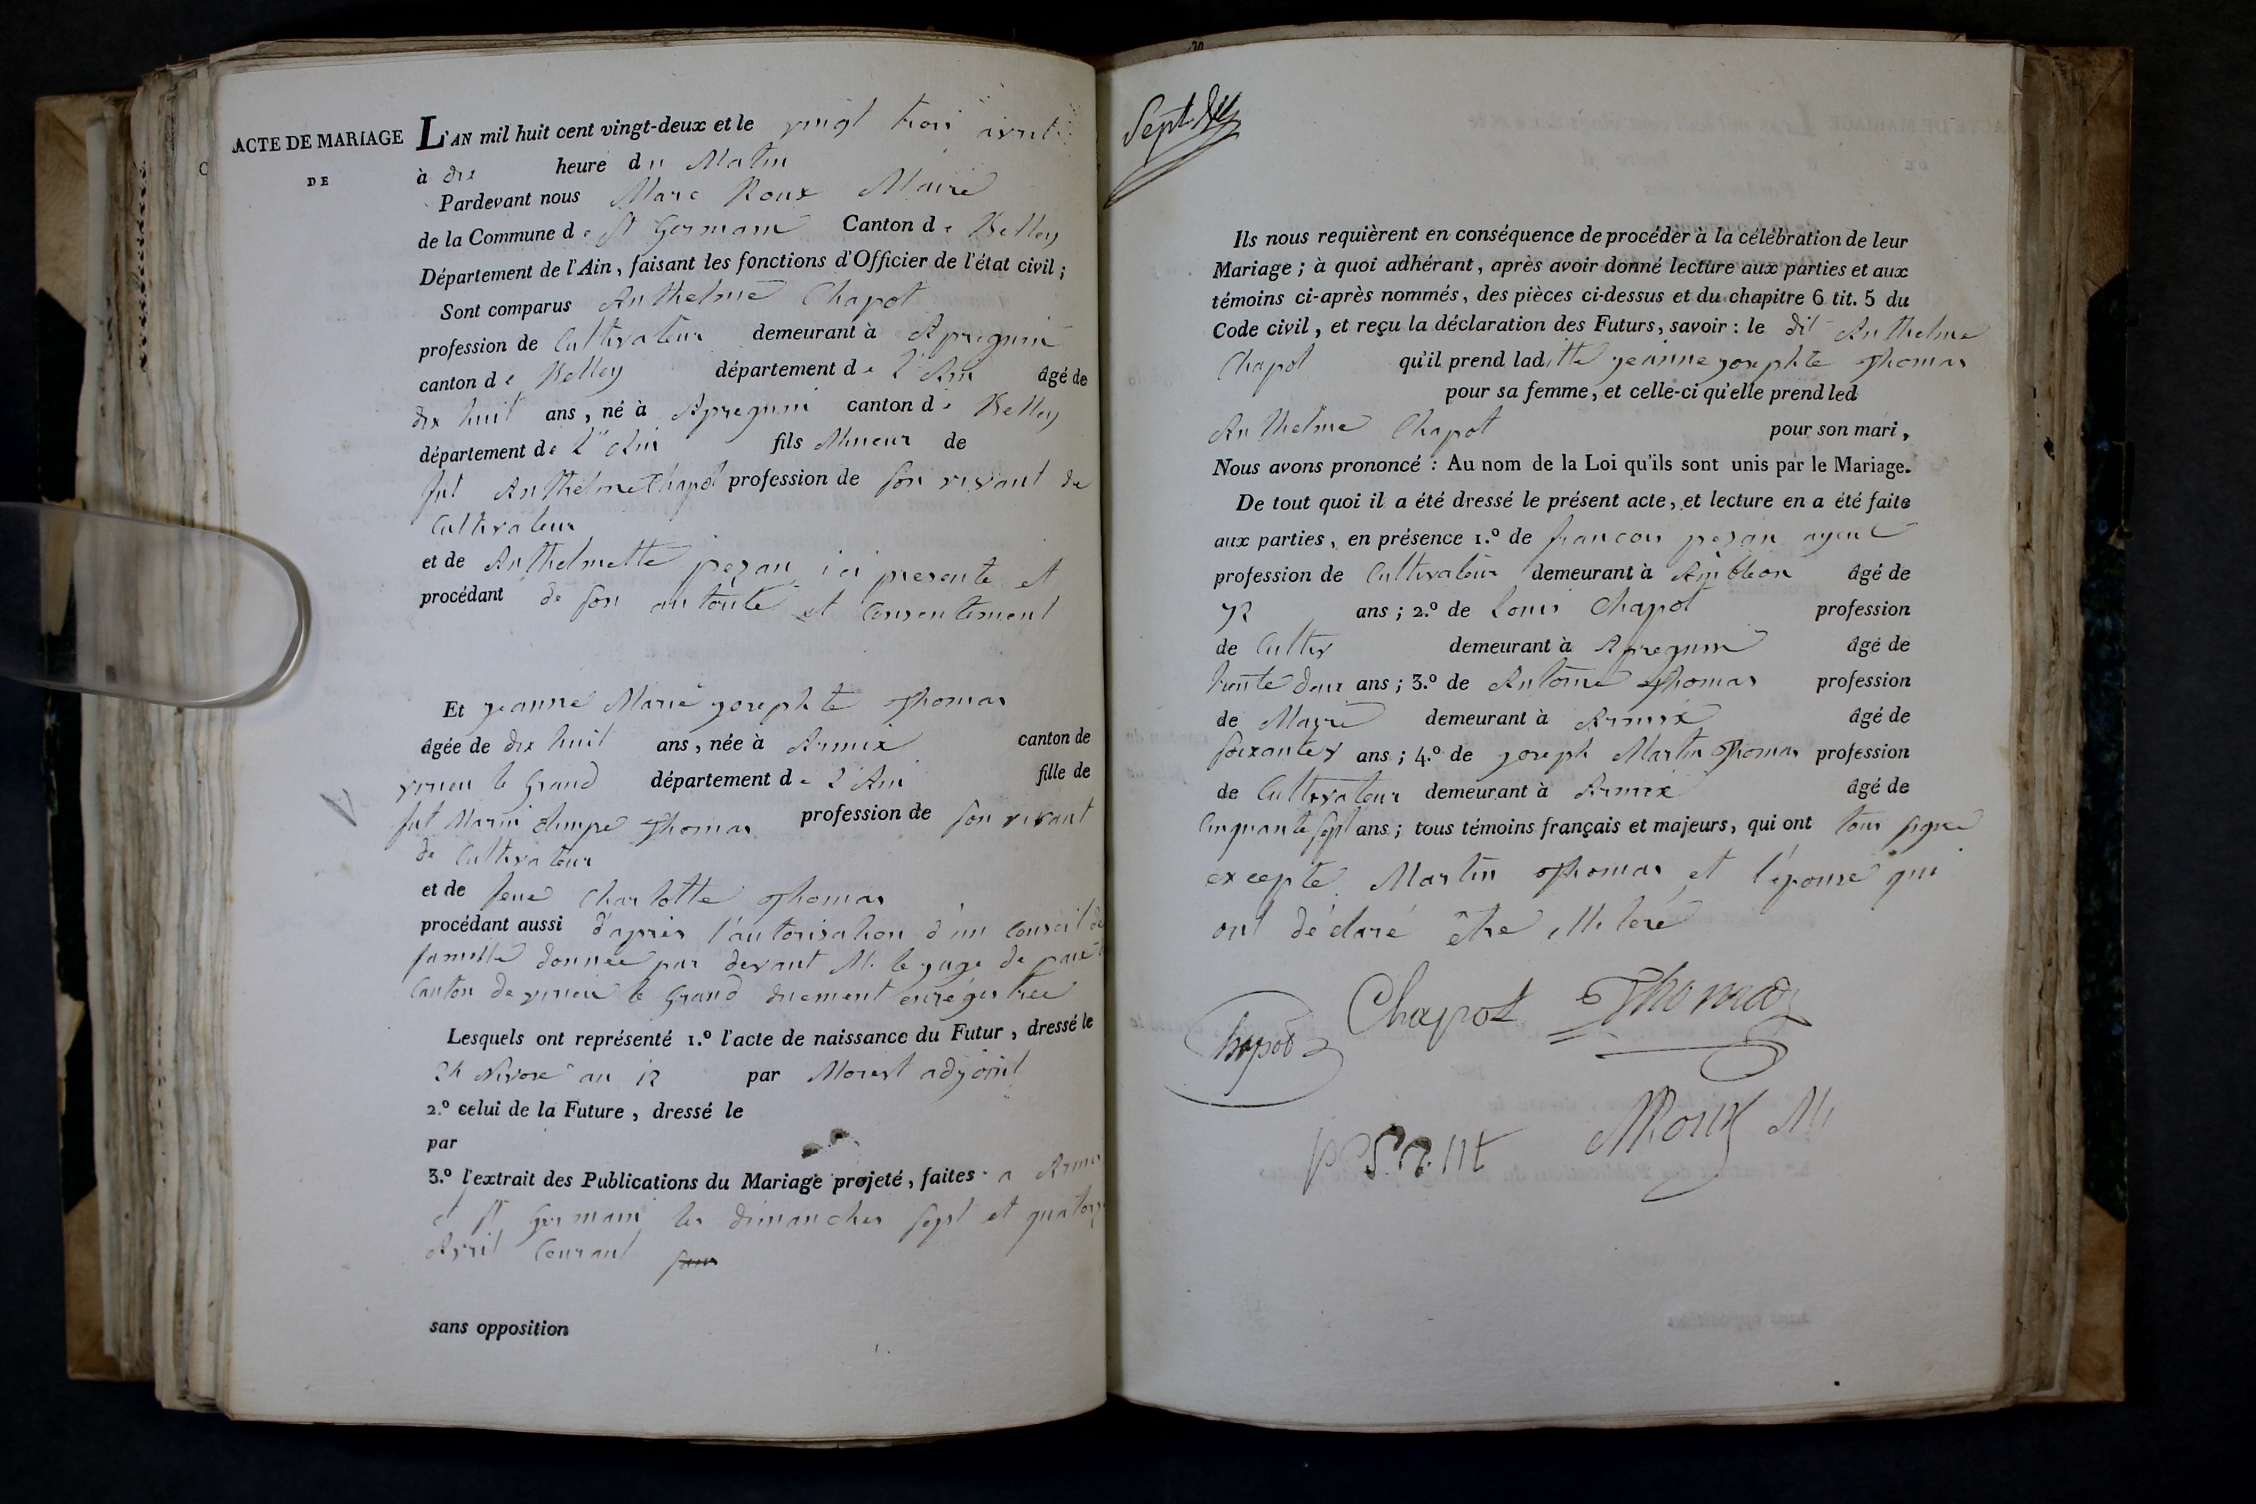 ACTE DE MARIAGE
DE
L'AN mil huit cent vingt-deux et le vingt trois avril
à dix heure du Matin
Pardevant nous Marc Roux Maire
de la Commune de St Germain Canton de Belley
Département de l'Ain, faisant les fonctions d'Officier de l'état civil;
Sont comparus Anthelme Chapot
profession de Cultivateur demeurant à Apregnin
canton de Belley département de L'Ain âgé de
dix huit ans, né à Apregnin canton de Belley
département de L'Ain fils Mineur de
fut Anthelme Chapot profession de son vivant de
Cultivateur
et de Anthelmette pezan ici presente et
procédant de son autorité et Consentement
Et jeanne Marie josephte Thomas
âgée de dix huit ans, née à Armix canton de
virieu le Grand département de L'Ain fille de
fut Marin olimpe Thomas profession de son vivant
de Cultivateur
et de feue Charlotte Thomas
procédant aussi d'après l'autorisation d'un Conseil de
famille donnée par devant M. le juge de paix
Canton de virieu le Grand duement enregistrée
Lesquels ont représenté 1.º l'acte de naissance du Futur, dressé le
24 Nivose an 12 par Morest adjoint
2.º celui de la Future, dressé le
par
3.º l'extrait des Publications du Mariage projeté, faites a Armi
et St Germain les dimanches sept et quatorze
Avril Courant sans
sans opposition
Sept
Ils nous requièrent en conséquence de procéder à la célébration de leur
Mariage; à quoi adhérant, après avoir donné lecture aux parties et aux
témoins ci-après nommés, des pièces ci-dessus et du chapitre 6 tit. 5 du
Code civil, et reçu la déclaration des Futurs, savoir: le dit Anthelme
Chapot qu'il prend laditte jeanne josephte Thomas
pour sa femme, et celle-ci qu'elle prend led
Anthelme Chapot pour son mari,
Nous avons prononcé: Au nom de la Loi qu'ils sont unis par le Mariage.
De tout quoi il a été dressé le présent acte, et lecture en a été faite
aux parties, en présence 1.º de francois pezan ayeul
profession de Cultivateur demeurant à Ambleon âgé de
72 ans; 2.º de Louis Chapot profession
de Cultiv demeurant à Apregnin âgé de
trente deux ans; 3.º de Antoine Thomas profession
de Maire demeurant à Armix âgé de
soixante ans; 4.º de joseph Martin Thomas profession
de Cultivateur demeurant à Armix âgé de
Cinquante sept ans; tous témoins français et majeurs, qui ont tous signé
excepte Martin Thomas et l'épouse qui
ont déclaré être illitéré
Chapot Thomas
Chapot
Roux M